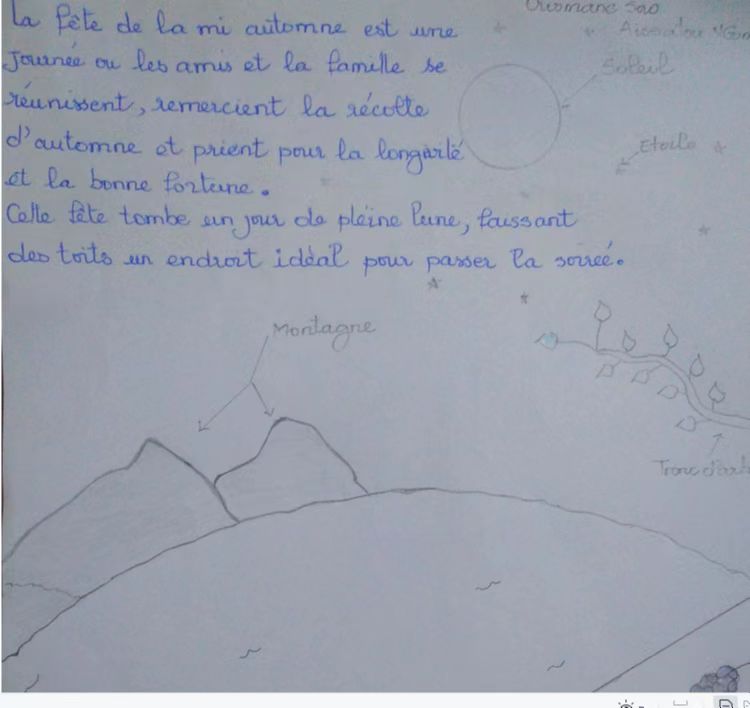 La fête de la mi automne est une
Journée ou les amis et la famille se
réunissent, remercient la récolte
d'automne et prient pour la longivité
et la bonne fortune.
Cette fête tombe un jour de pleine lune, faissant
des toits un endroit idéal pour passer la soireé.
Ousmane Sao
Soleil
Etoile
Montagne
Tronc